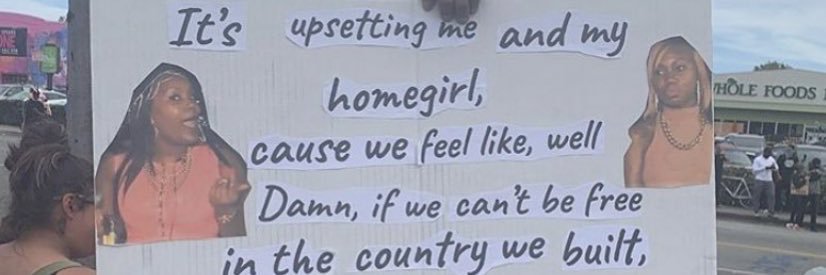 It's upsetting me and my
homegirl,
cause we feel like, well
Damn, if we can't be free
in the country we built,
WHOLE FOODS